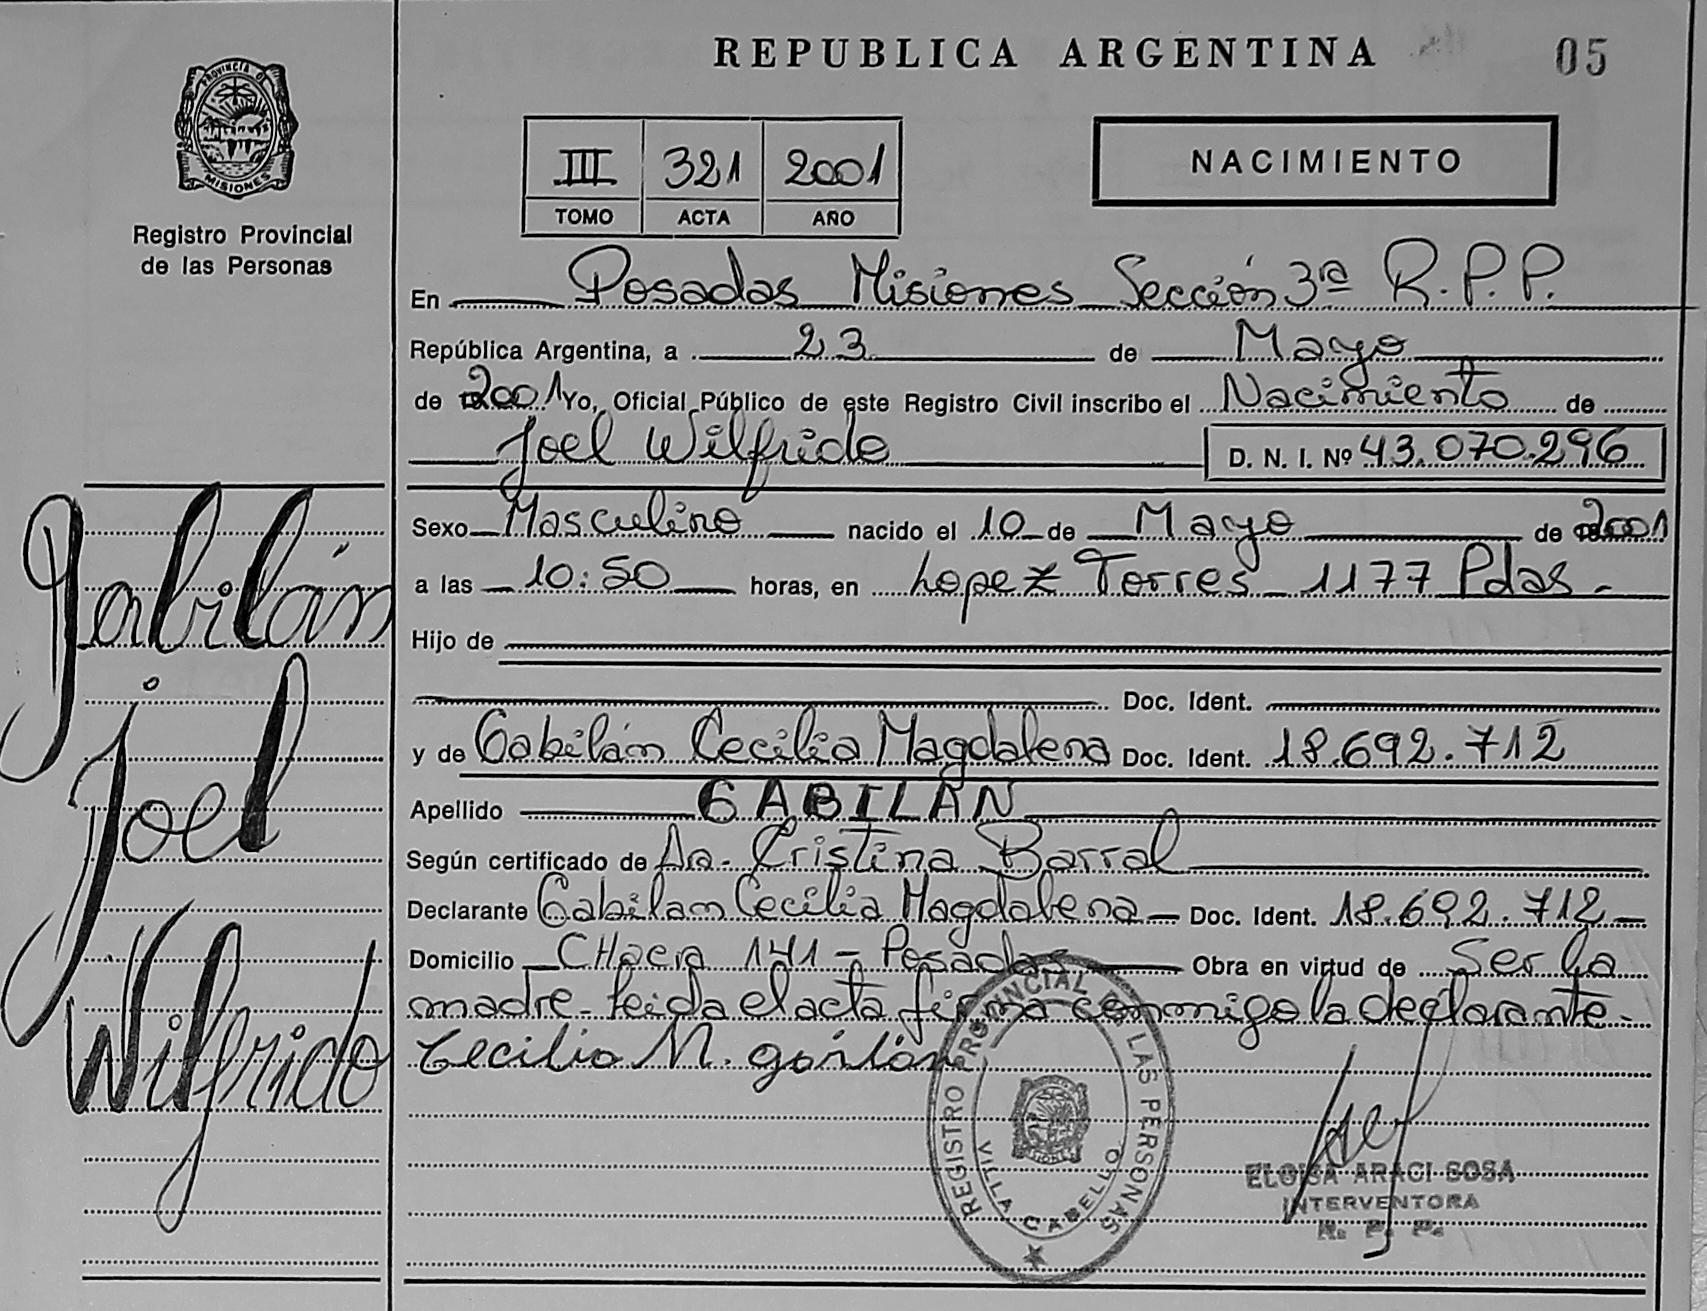 REPUBLICA ARGENTINA
05
PROVINCIA DE
MISIONES
Registro Provincial
de las Personas
III 321 2001
TOMO ACTA AÑO
NACIMIENTO
En Posadas Misiones Sección 3ra R.P.P.
República Argentina, a 23 de Mayo
de 2001 Yo, Oficial Público de este Registro Civil inscribo el Nacimiento de
Joel Wilfrido D. N. I. Nº 43.070.296
Sexo Masculino nacido el 10 de Mayo de 2001
a las 10:50 horas, en Lopez Torres 1177 Pdas.-
Hijo de
Doc. Ident.
y de Gabilán Cecilia Magdalena Doc. Ident. 18.692.712
Apellido GABILAN
Según certificado de Dra. Cristina Barral
Declarante Gabilan Cecilia Magdalena - Doc. Ident. 18.692.712-
Domicilio CHacra 141 - Posadas Obra en virtud de Ser la
madre- leida el acta firma conmigo la declarante.-
Cecilia M.
Gabilán
Joel
Wilfrido
REGISTRO PROVINCIAL DE LAS PERSONAS
VILLA CABELLO
ELOISA ARACI SOSA
INTERVENTORA
R. P. P.